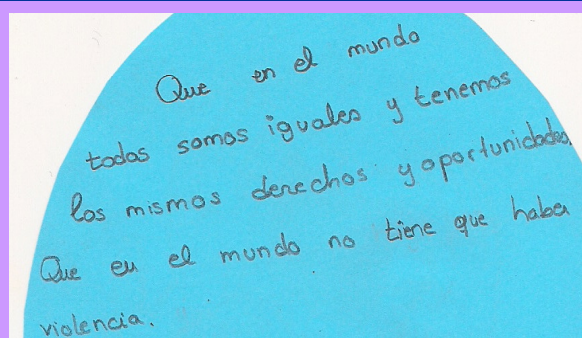 Que en el mundo
todos somos iguales y tenemos
los mismos derechos y oportunidades.
Que en el mundo no tiene que haber
violencia.